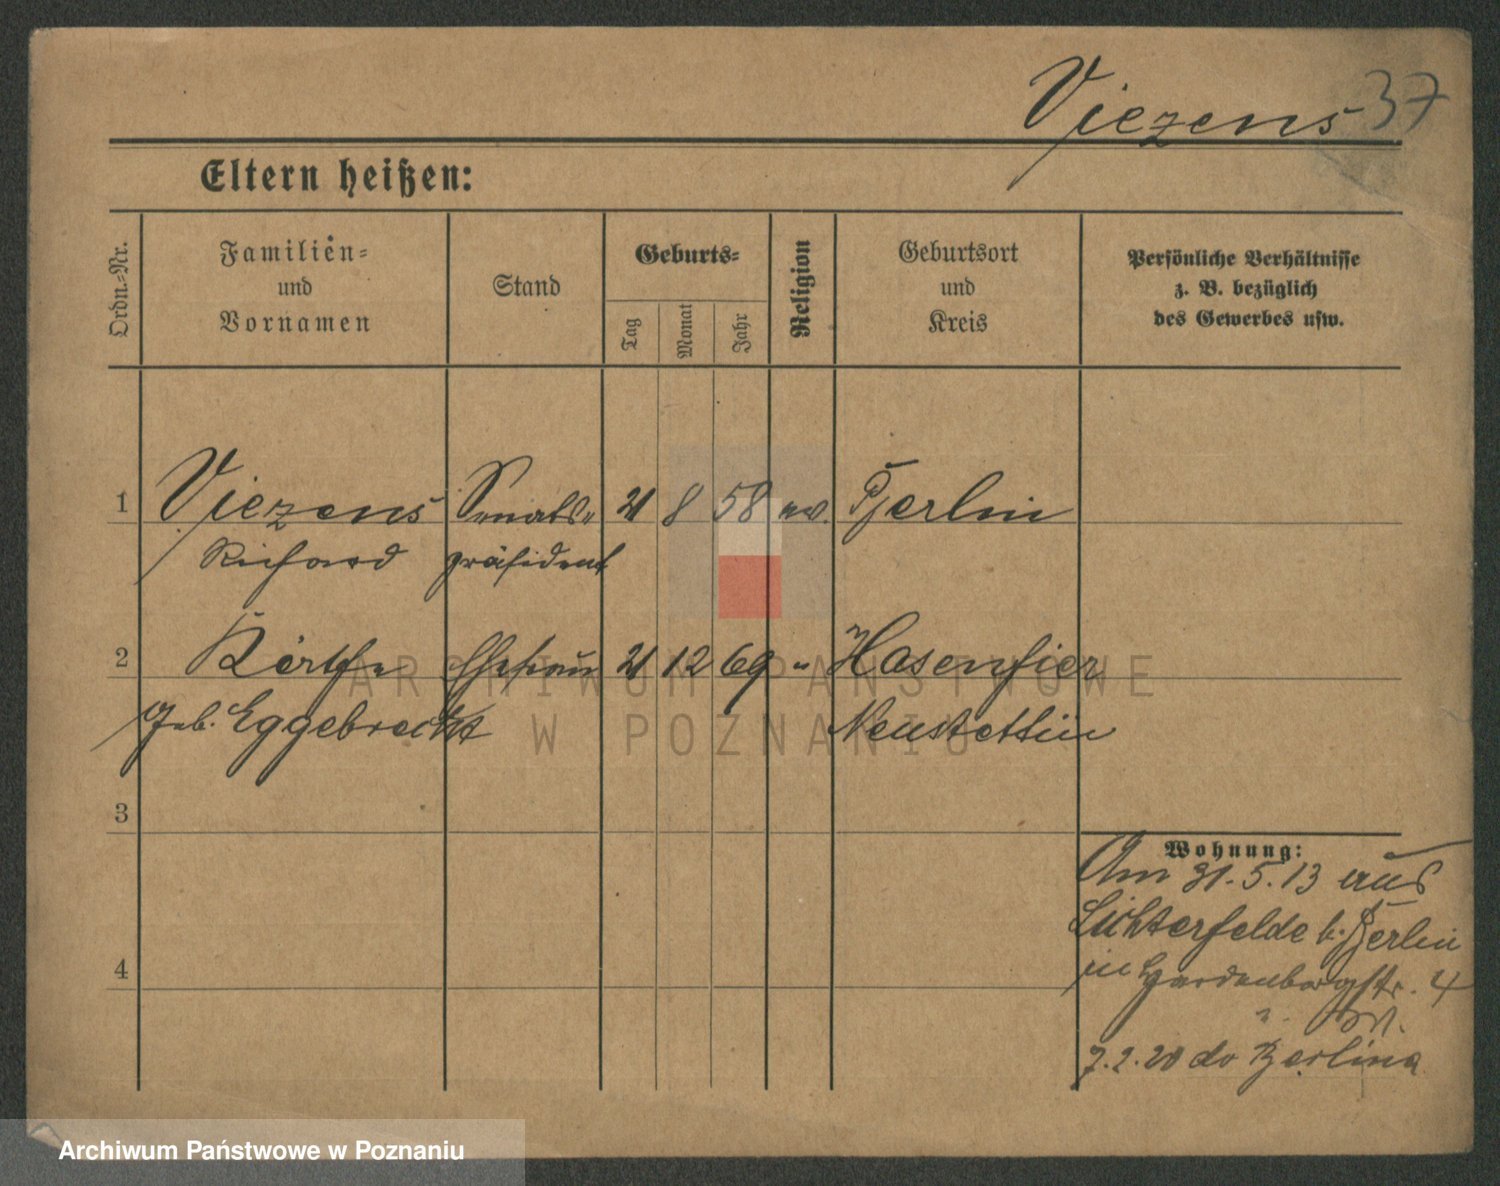 Viezens 37
Eltern heißen:
Ordn.-Nr.
Familien-
und
Vornamen
Stand
Geburts-
Tag
Monat
Jahr
Religion
Geburtsort
und
Kreis
Persönliche Verhältnisse
z. B. bezüglich
des Gewerbes usw.
1 Viezens Senats- 21 8 58 ev. Berlin
Richard präsident
2 Käthe Ehefrau 21 12 69 " Hasenfier
geb. Eggebrecht Neustettin
3
4
Wohnung:
Am 31.5.13 aus
Lichterfelde b. Berlin
in Hardenbergstr. 4
7.2.20 do Berlina
ARCHIWUM PAŃSTWOWE
W POZNANIU
Archiwum Państwowe w Poznaniu